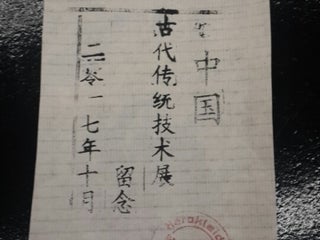 中国
古代传统技术展
留念
二零一七年十月
herakleid